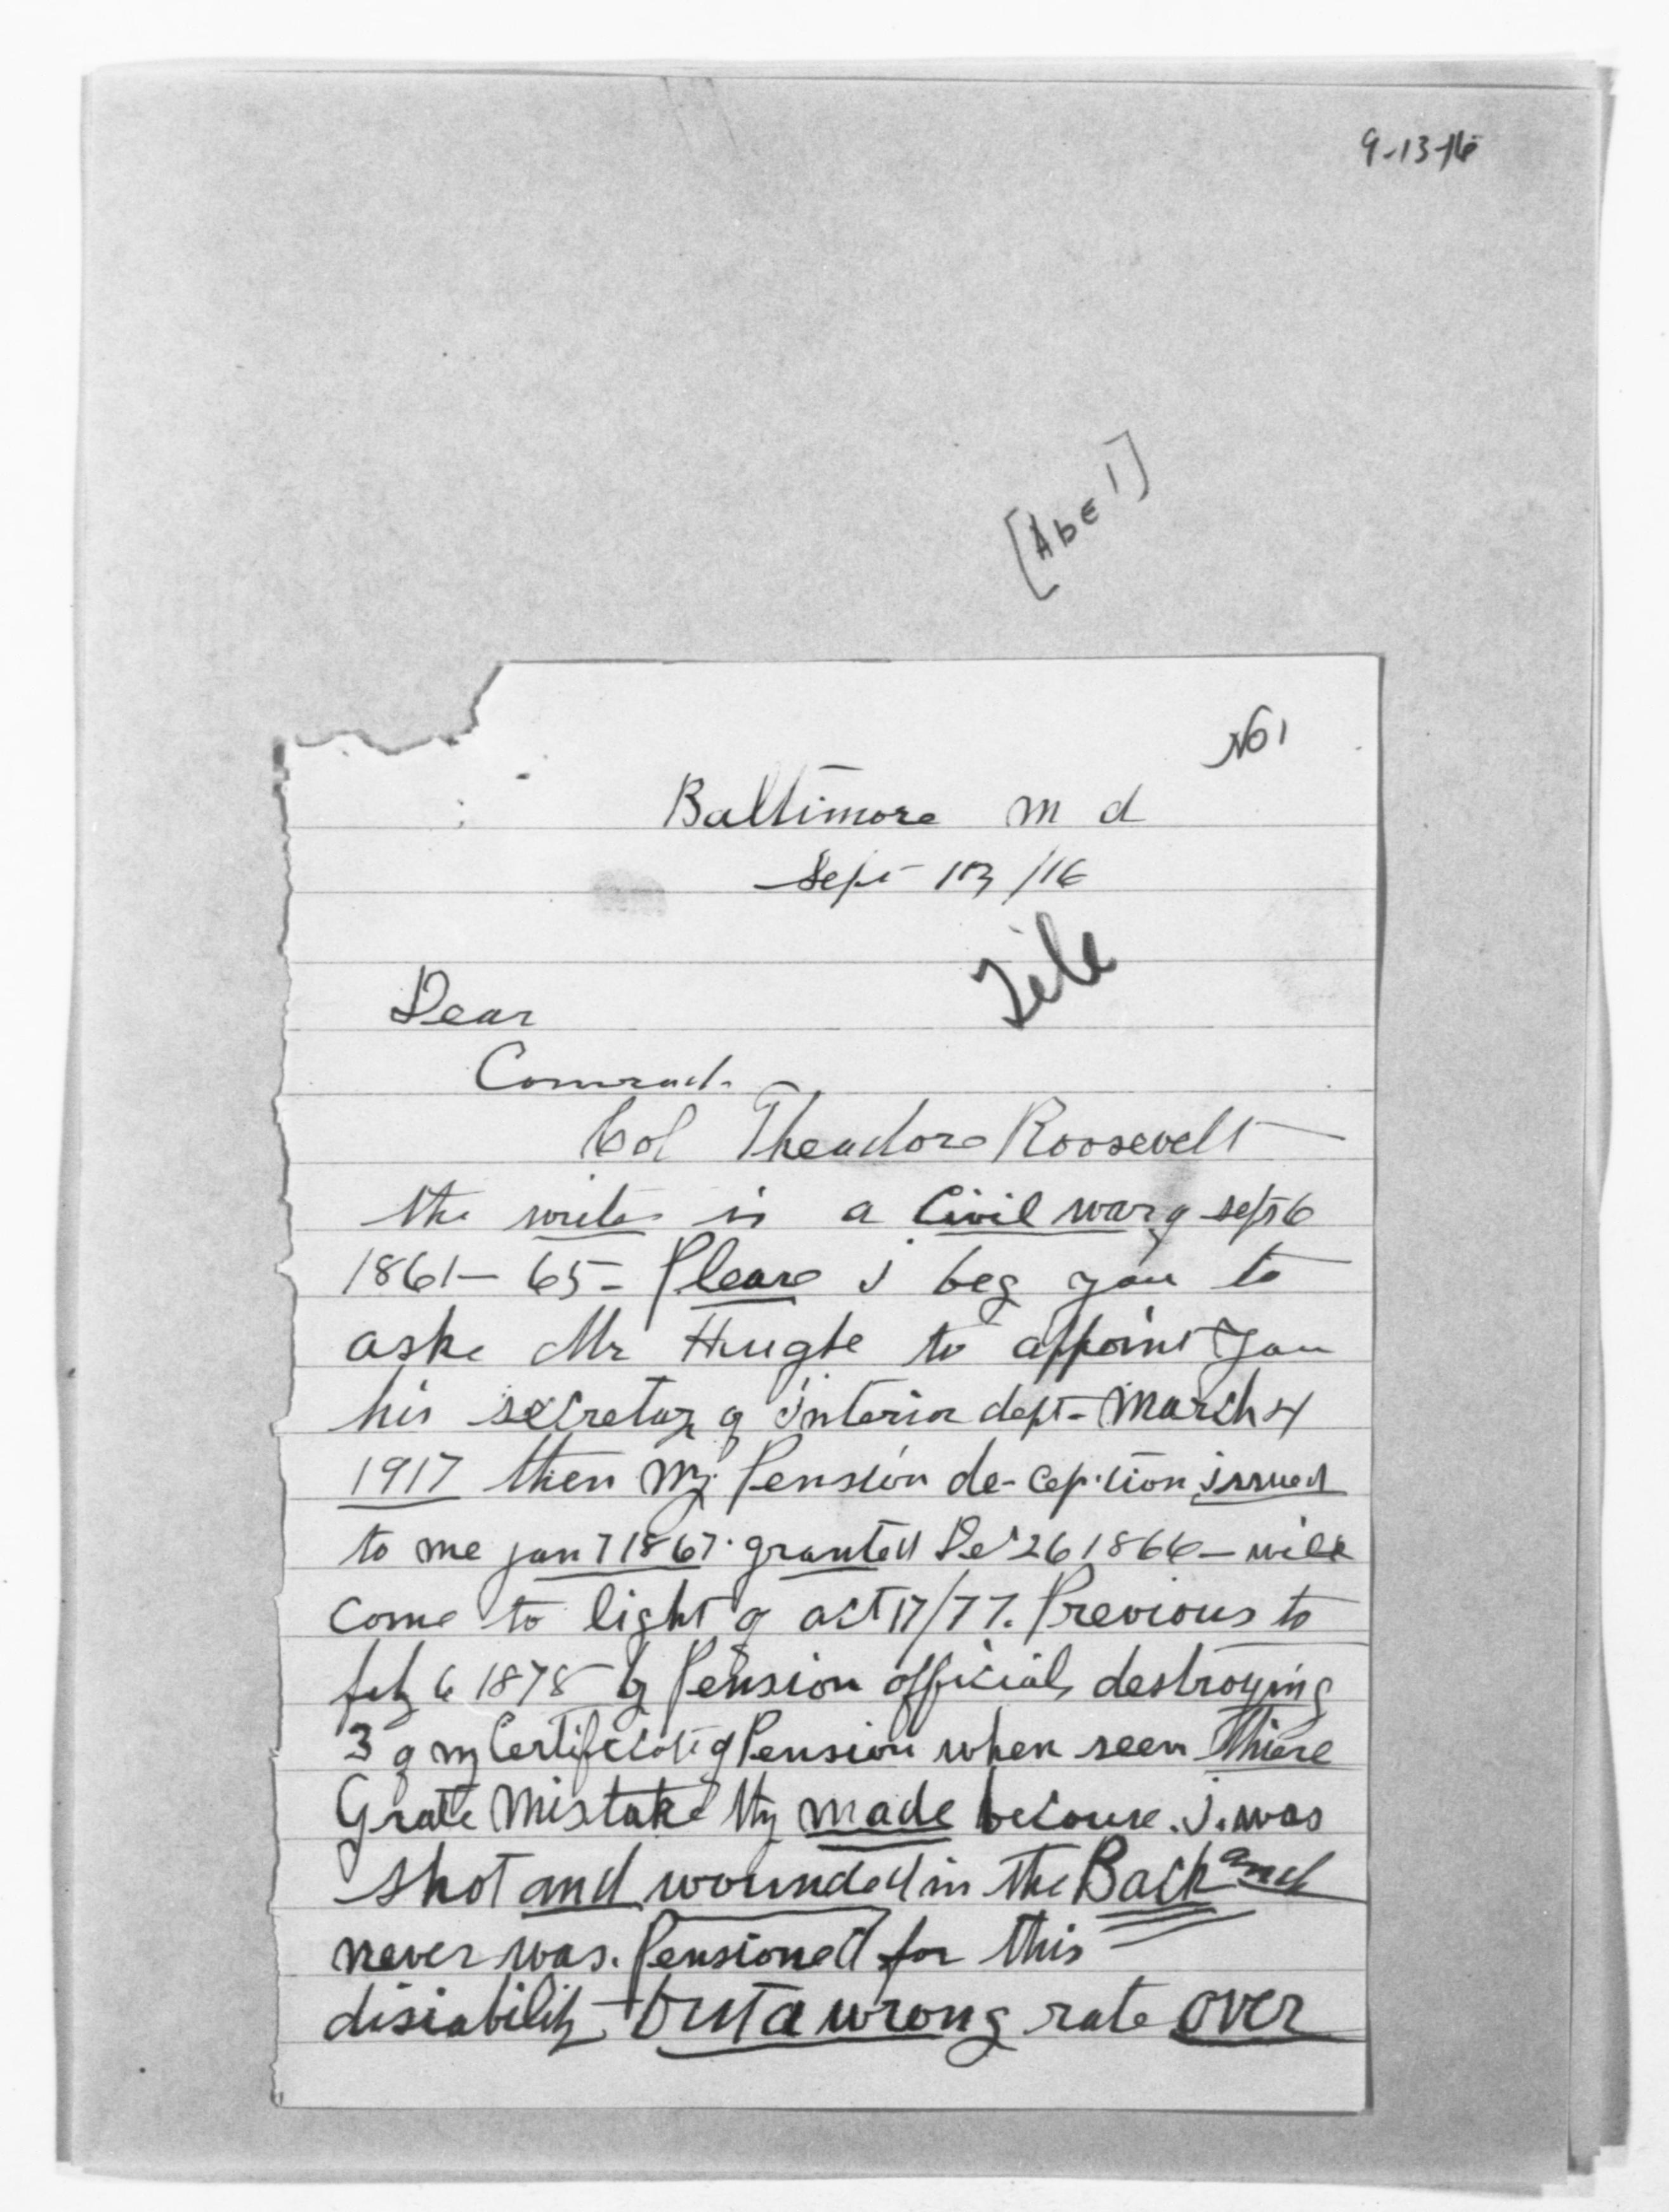 9-13-16
[Abel]
No 1
Baltimore M d
Sept 13/16
File
Dear
Comrad.
Col Theodore Roosevelt
the writer is a Civil war of sept 6
1861 - 65 - Please i beg you to
aske Mr Hughe to appoint you
his secretary of interior dept - March 4
1917 then my Pension de-ception issued
to me jan 7 1867. granted De' 26 1866 - will
come to light of act 17/77. Previous to
feb 6 1878 by Pension officials destroying
3 of my Certificate of Pension when seen thiere
Grate Mistake thy made becouse. i. was
shot and wounded in the Back and
never was. Pensioned for this
disiability - but a wrong rate over